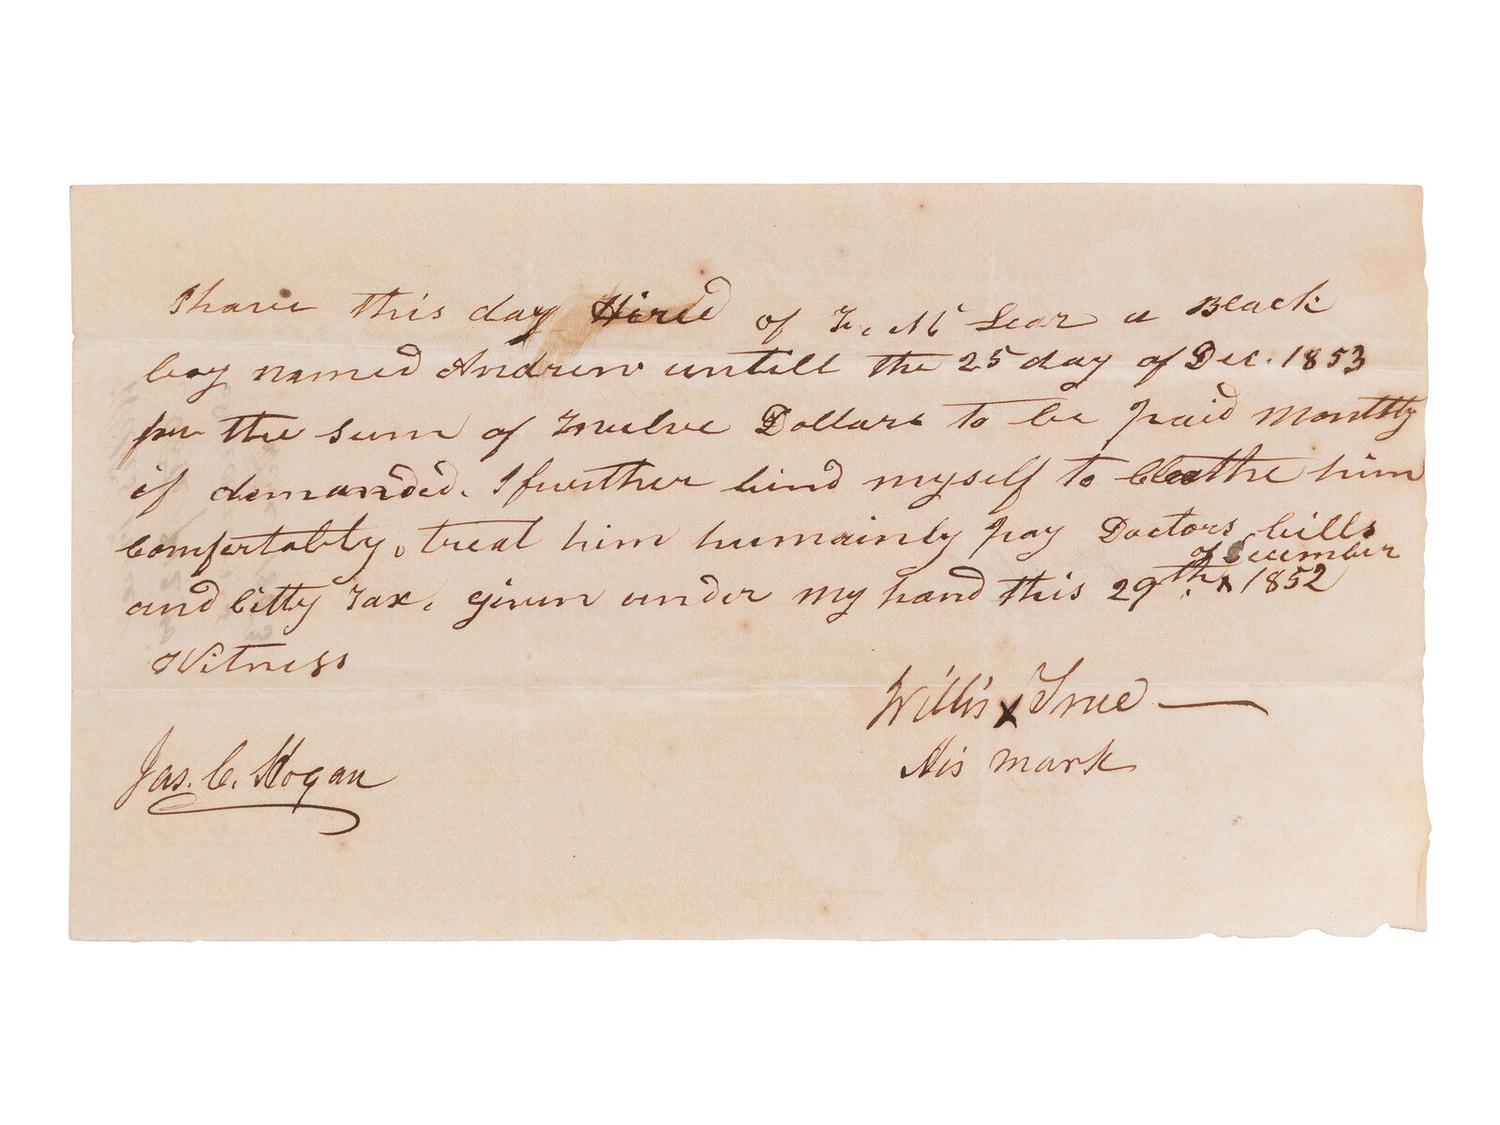 I have this day Hired of F. Mc Lear a Black
boy named Andrew untill the 25 day of Dec. 1853
for the sum of Twelve Dollars to be paid Monthly
if demanded. I further bind myself to Cloathe him
Comfortably, treat him humainly pay Doctors bills
of December
and Citty Tax. given under my hand this 29th. x 1852
Witness
Willis x True
Jas. C. Hogan
His mark